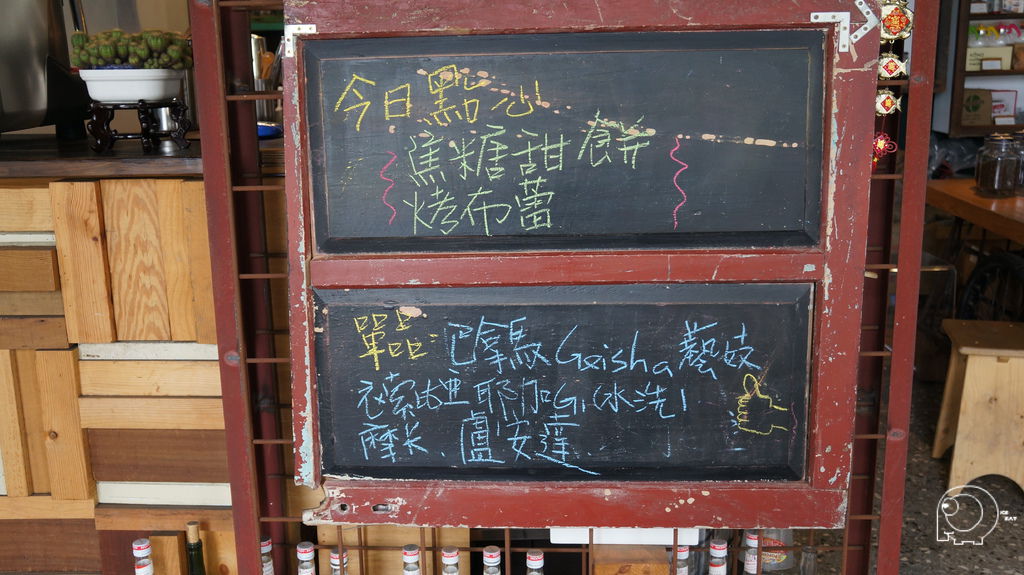 今日點心
焦糖甜餅
烤布蕾
單品: 巴拿馬 Geisha 藝妓
衣索比亞 耶加G1(水洗)
摩卡、盧安達.